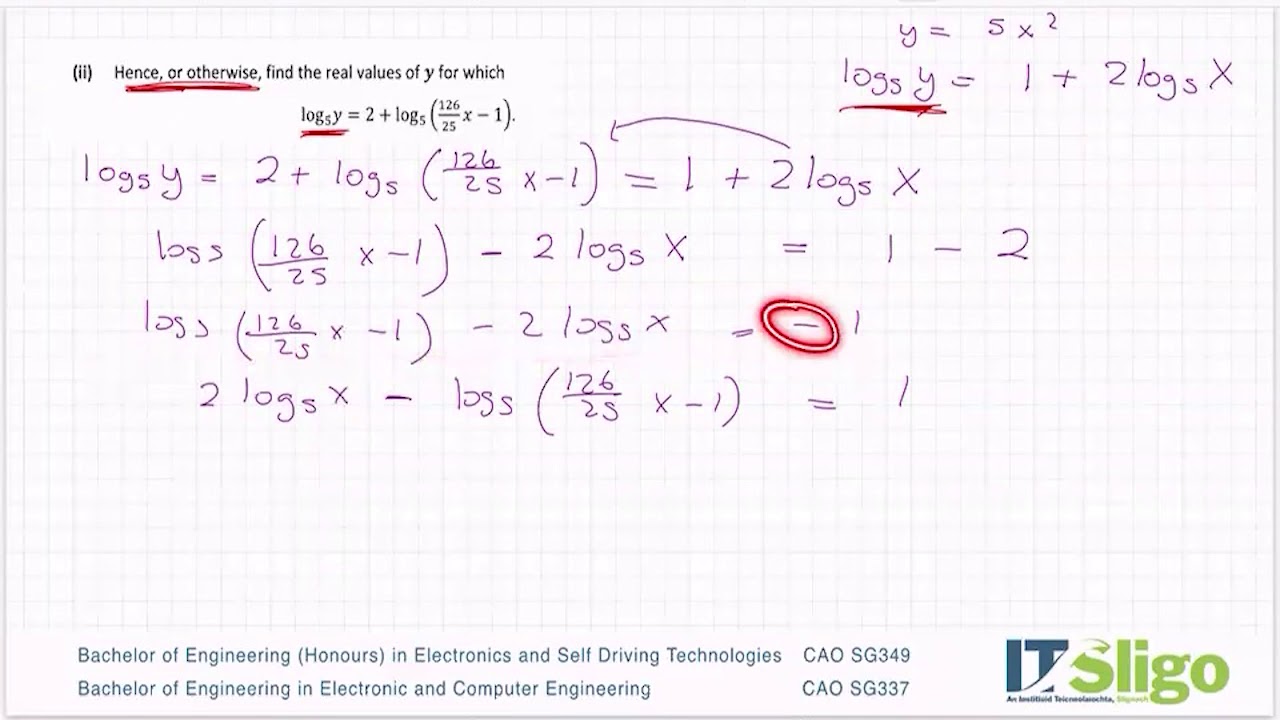 y = 5x²
log₅ y = 1 + 2 log₅ X
(ii) Hence, or otherwise, find the real values of y for which
log₅y = 2 + log₅ (126/25 x − 1).
log₅ y = 2 + log₅ (126/25 x − 1) = 1 + 2 log₅ X
log₅ (126/25 x − 1) − 2 log₅ X = 1 − 2
log₅ (126/25 x − 1) − 2 log₅ x = − 1
2 log₅ x − log₅ (126/25 x − 1) = 1
Bachelor of Engineering (Honours) in Electronics and Self Driving Technologies CAO SG349
Bachelor of Engineering in Electronic and Computer Engineering CAO SG337
IT Sligo
An Institiúid Teicneolaíochta, Sligeach